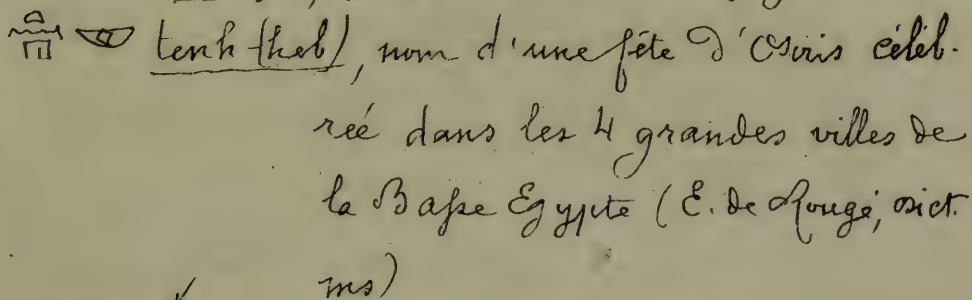 tenh (heb), nom d'une fête d'Osiris céléb-
reé dans les 4 grandes villes de
la Basse Egypte (E. de Rougé, dict.
ms)